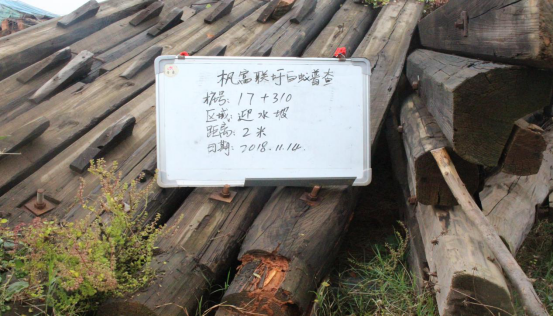 枞富联圩白蚁普查
桩号: 17+310
区域: 迎水坡
距离: 2米
日期: 2018.11.14.